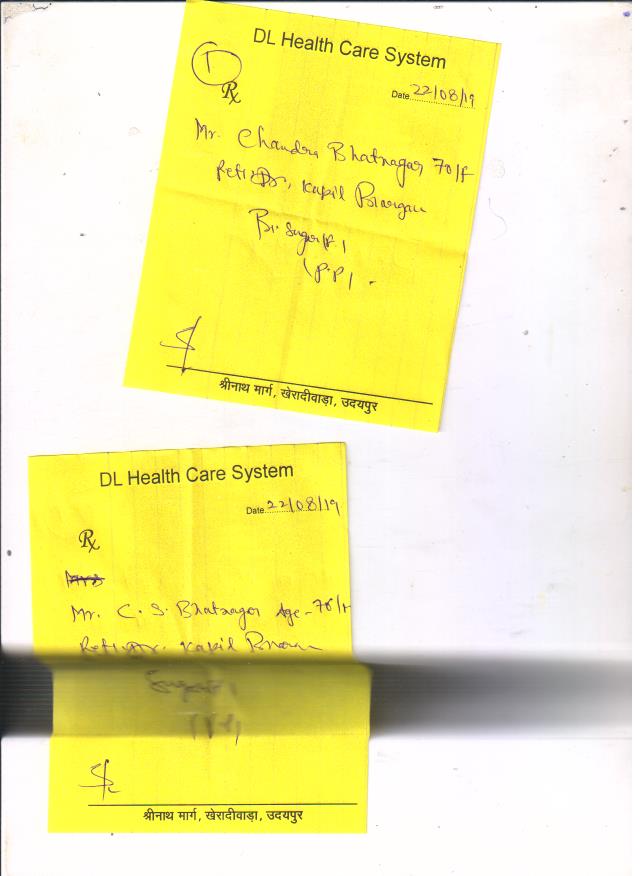 DL Health Care System
1
Rx
Date 22/08/19
Mr. Chandra Bhatnagar 70/F
Ref: Dr. Kapil Bhargav
Bl. Sugar (F)
(P.P)
श्रीनाथ मार्ग, खेरादीवाड़ा, उदयपुर
DL Health Care System
Date 22/08/19
Rx
Mr. C. S. Bhatnagar Age - 76/
Ref: Dr. Kapil
Sugar
श्रीनाथ मार्ग, खेरादीवाड़ा, उदयपुर